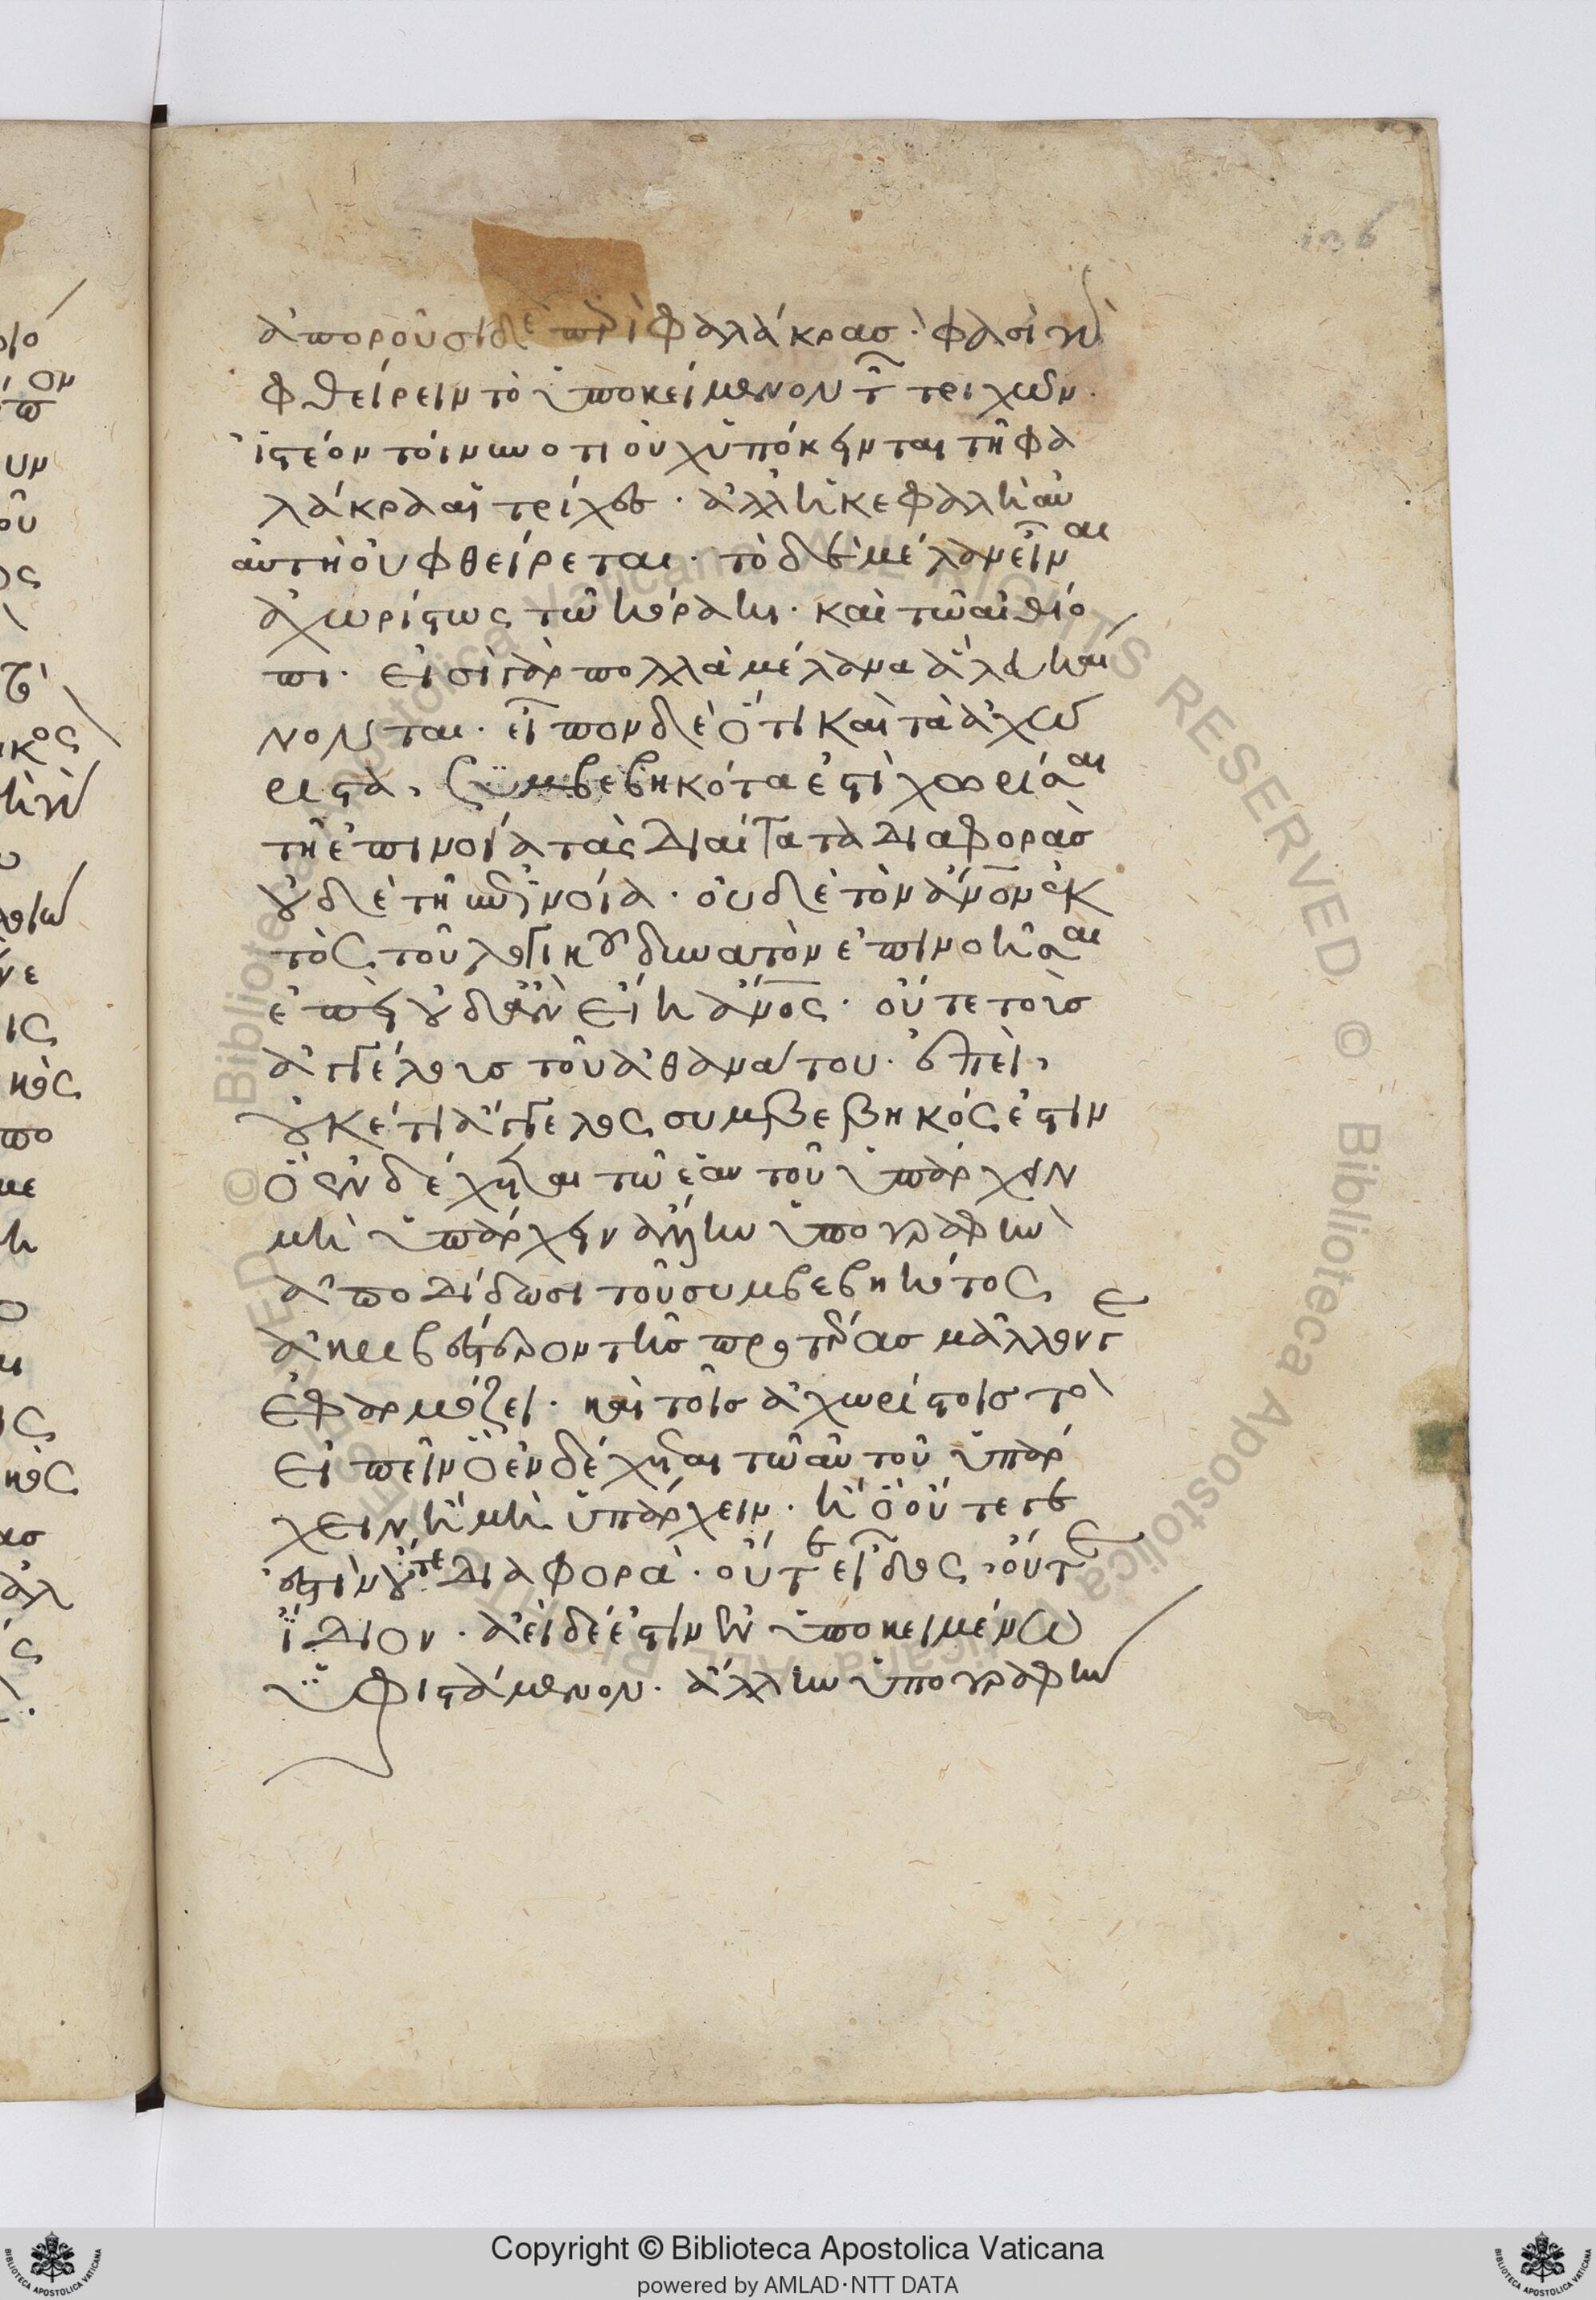 136
ἀποροῦσι δὲ περὶ φαλάκρας· φασὶ γὰρ
φθείρειν τὸ ὑποκείμενον τῶν τριχῶν·
ἰστέον τοίνυν ὅτι οὐχ ὑπόκεινται τῆ φα
λάκρα αἱ τρίχες· ἀλλ' ἡ κεφαλὴ αὐ
αὐτὴ οὐ φθείρεται· τὸ δὲ μέλαν εἶναι
ἀχωρίστως τῶ κόρακι· καὶ τῶ αἰθίο
πι· εἰσὶ γὰρ πολλὰ μέλανα ἃ λευκαί
νονται· εἶπον δὲ ὅτι καὶ τὰ ἀχώ
ριστα, συμβεβηκότα ἐστὶ χωρίσαι
τῆ ἐπινοία τὰς δι αἰτατα διαφορὰς
οὐδὲ τῆ ἐπινοία· οὐδὲ τὸν ἄνον ἐκ
τὸς τοῦ λογικοῦ δυνατὸν ἐπινοῆσαι
ἐπεὶ οὐδ' ἂν εἴη ἄνος· οὔτε τοὺς
ἀγγέλους τοῦ ἀθανάτου· ἐπεὶ,
οὐκέτι ἄγγελος συμβεβηκός ἐστιν
ὃ ἐνδέχεται τῶ ἑαυτοῦ ὑπάρχειν
μὴ ὑπάρχειν ὑπογραφὴν
ἀποδίδωσι τοῦ συμβεβηκότος
ἀκριβεστέραν τῆς προτέρας μᾶλλον
ἐφαρμόζει· καὶ τοῖς ἀχωρίστοις τὸ
εἰπεῖν ὃ ἐνδέχεται τῶ αὐτοῦ ὑπάρ
χειν ἢ μὴ ὑπάρχειν· ἢ ὃ οὔτε γέ
ἐστὶν οὔτε διαφορὰ· οὔτε εἶδος, οὔτε
ἴδιον· ἀεὶ δέ ἐστιν ἐν ὑποκειμένω
ὑφιστάμενον· ἄλλην ὑπογραφὴν
Copyright © Biblioteca Apostolica Vaticana
powered by AMLAD·NTT DATA